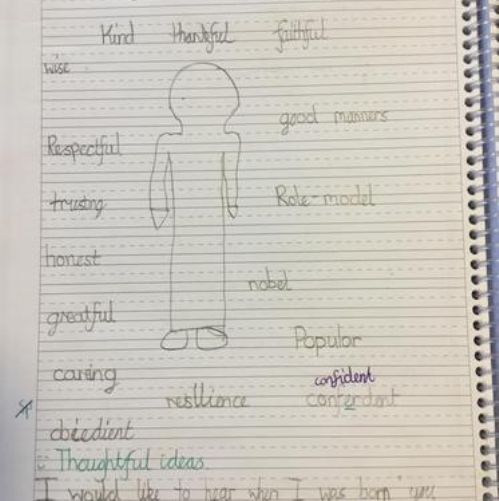 Kind thankful faithful
wise
good manners
Respectful
trusting Role-model
honest
nobel
greatful
Popular
caring confident
resllience conferdent
obeedient
Thoughtful ideas.
I would like to hear when I was born